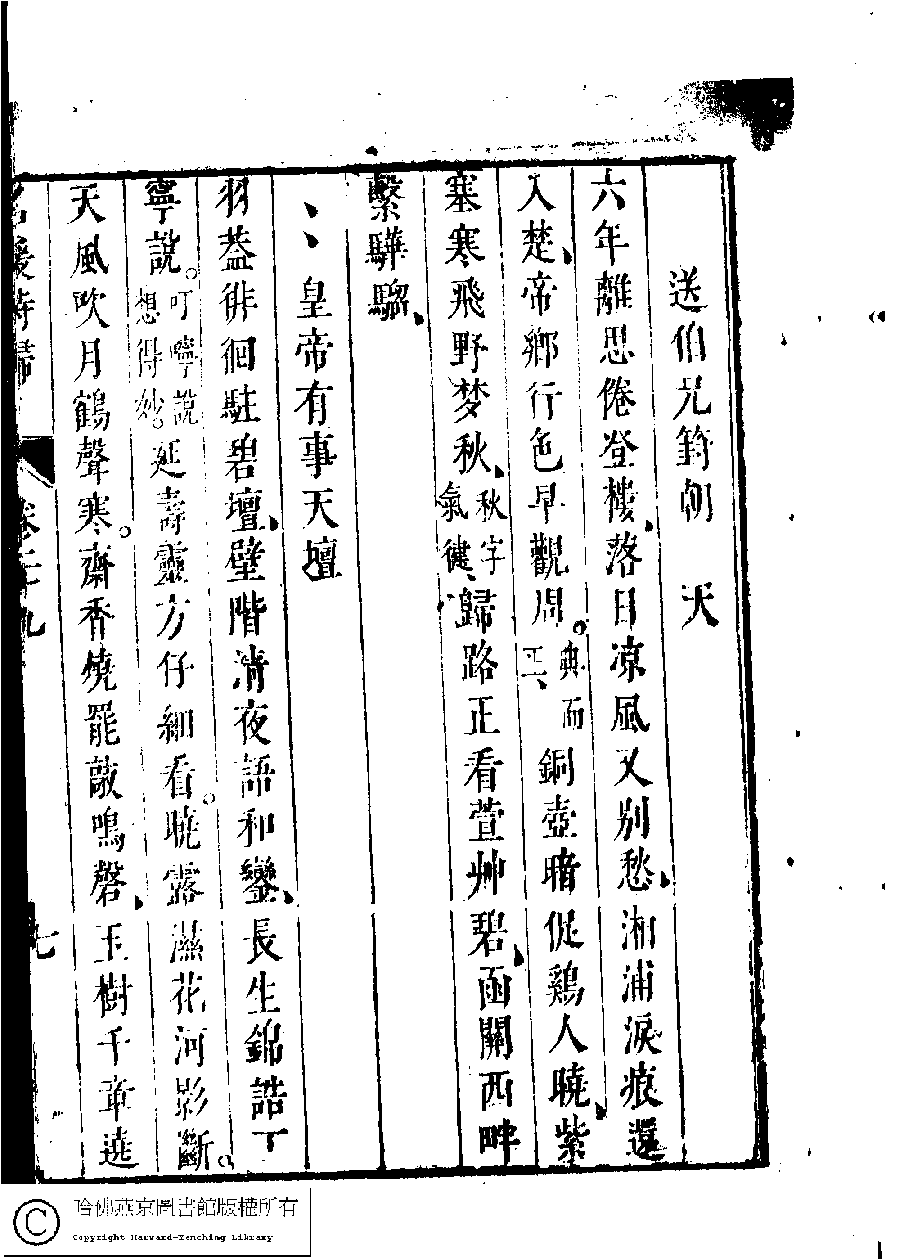 送伯兄籌朝　天
六年離思倦登樓、落日凉風又別愁、湘浦淚痕還
入楚、帝鄉行色早觀周。典而正、銅壺暗促鷄人曉、紫
塞寒飛野梦秋、秋字氣健、歸路正看萱艸碧、函關西畔
繫驊騮、
皇帝有事天壇
羽蓋徘徊駐碧壇、璧階清夜語和鑾、長生錦誥丁
寧說。叮嚀說想得妙。延壽靈方仔細看。曉露濕花河影斷。
天風吹月鶴聲寒。齋香燒罷敲鳴磬、玉樹千章遶
名媛詩歸　卷二九　七
哈佛燕京圖書館版權所有
Copyright Harvard-Yenching Library